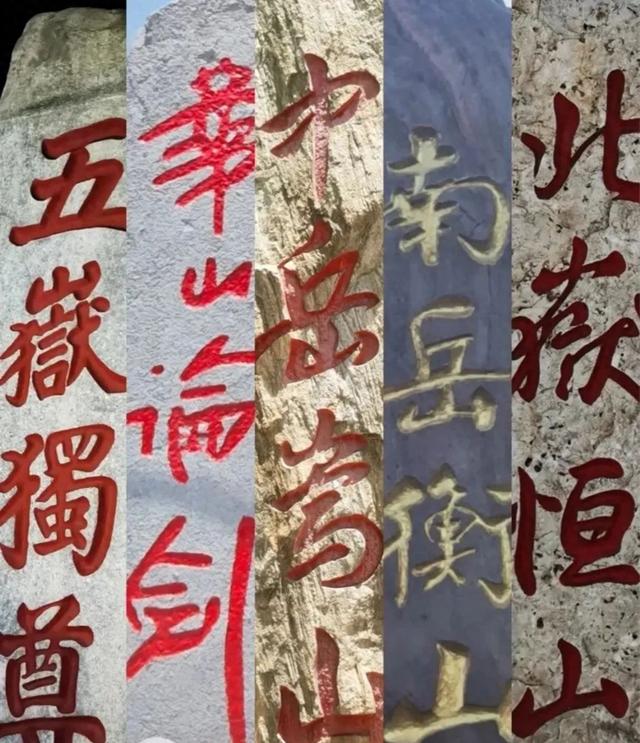 五嶽獨尊
華山論劍
中岳嵩山
南岳衡山
北嶽恒山